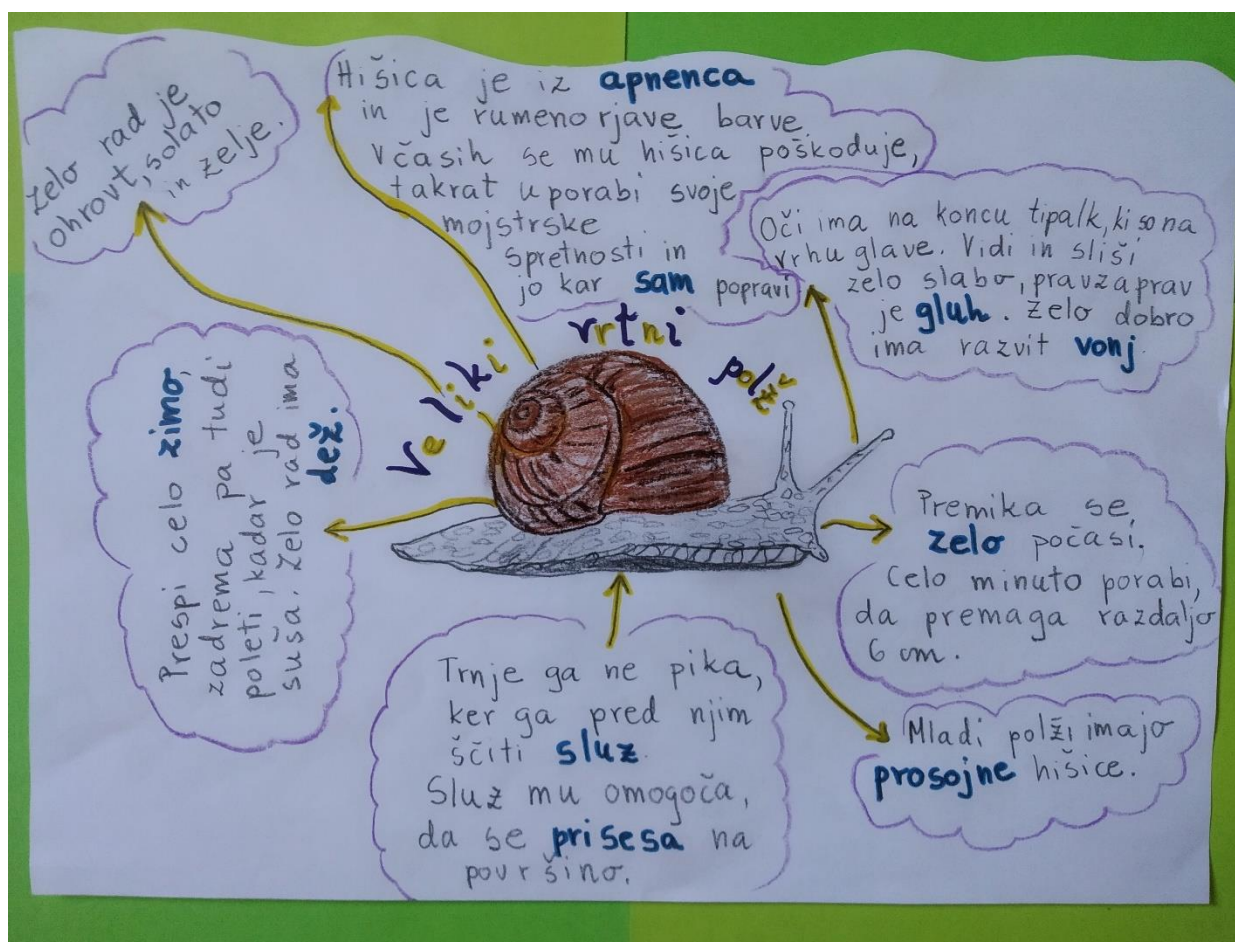 Zelo rad je
ohrovt, solato
in zelje.
Hišica je iz apnenca
in je rumenorjave barve.
Včasih se mu hišica poškoduje,
takrat uporabi svoje
mojstrske
spretnosti in
jo kar sam popravi
Oči ima na koncu tipalk, ki so na
vrhu glave. Vidi in sliši
zelo slabo, pravzaprav
je gluh. Zelo dobro
ima razvit vonj.
Veliki vrtni polž
Prespi celo zimo,
zadrema pa tudi
poleti, kadar je
suša. Zelo rad ima
dež.
Premika se
zelo počasi.
Celo minuto porabi,
da premaga razdaljo
6 cm.
Trnje ga ne pika,
ker ga pred njim
ščiti sluz.
Sluz mu omogoča,
da se prisesa na
površino.
Mladi polži imajo
prosojne hišice.